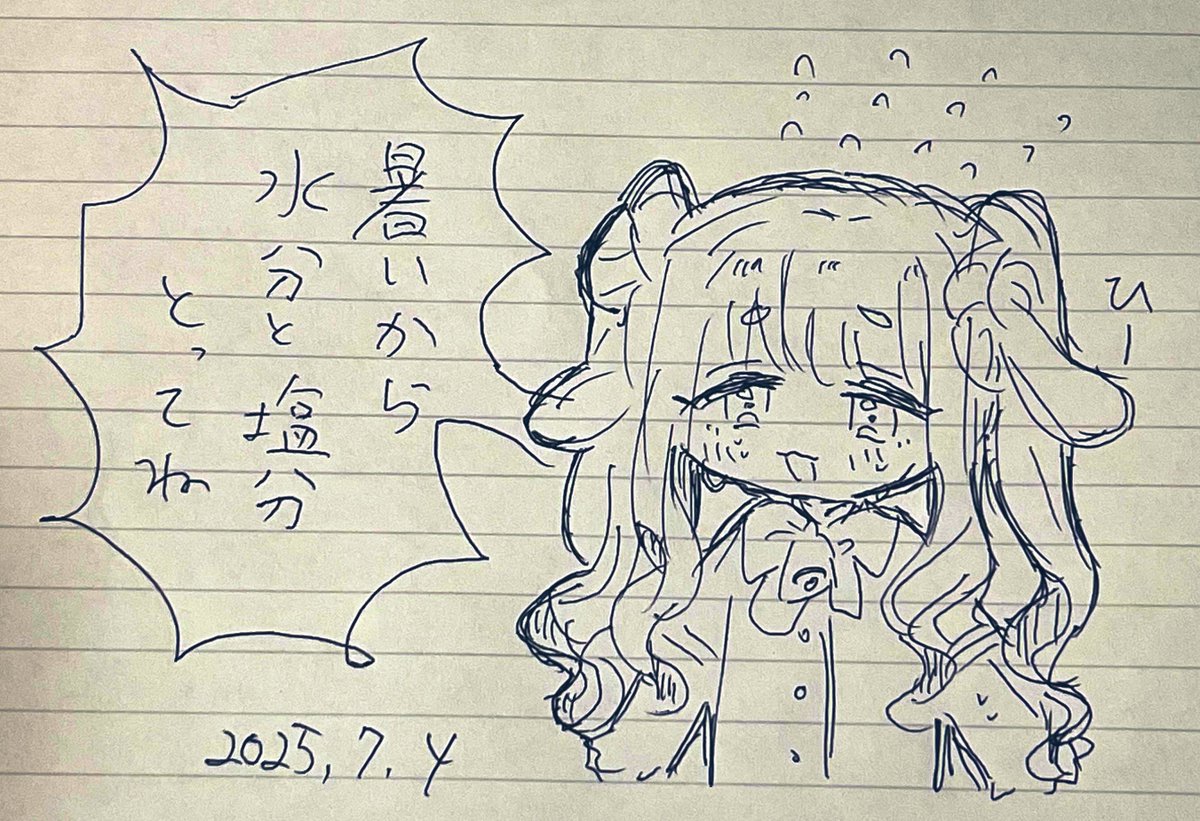 暑いから
水分と塩分
とってね
ひー
2025.7.4